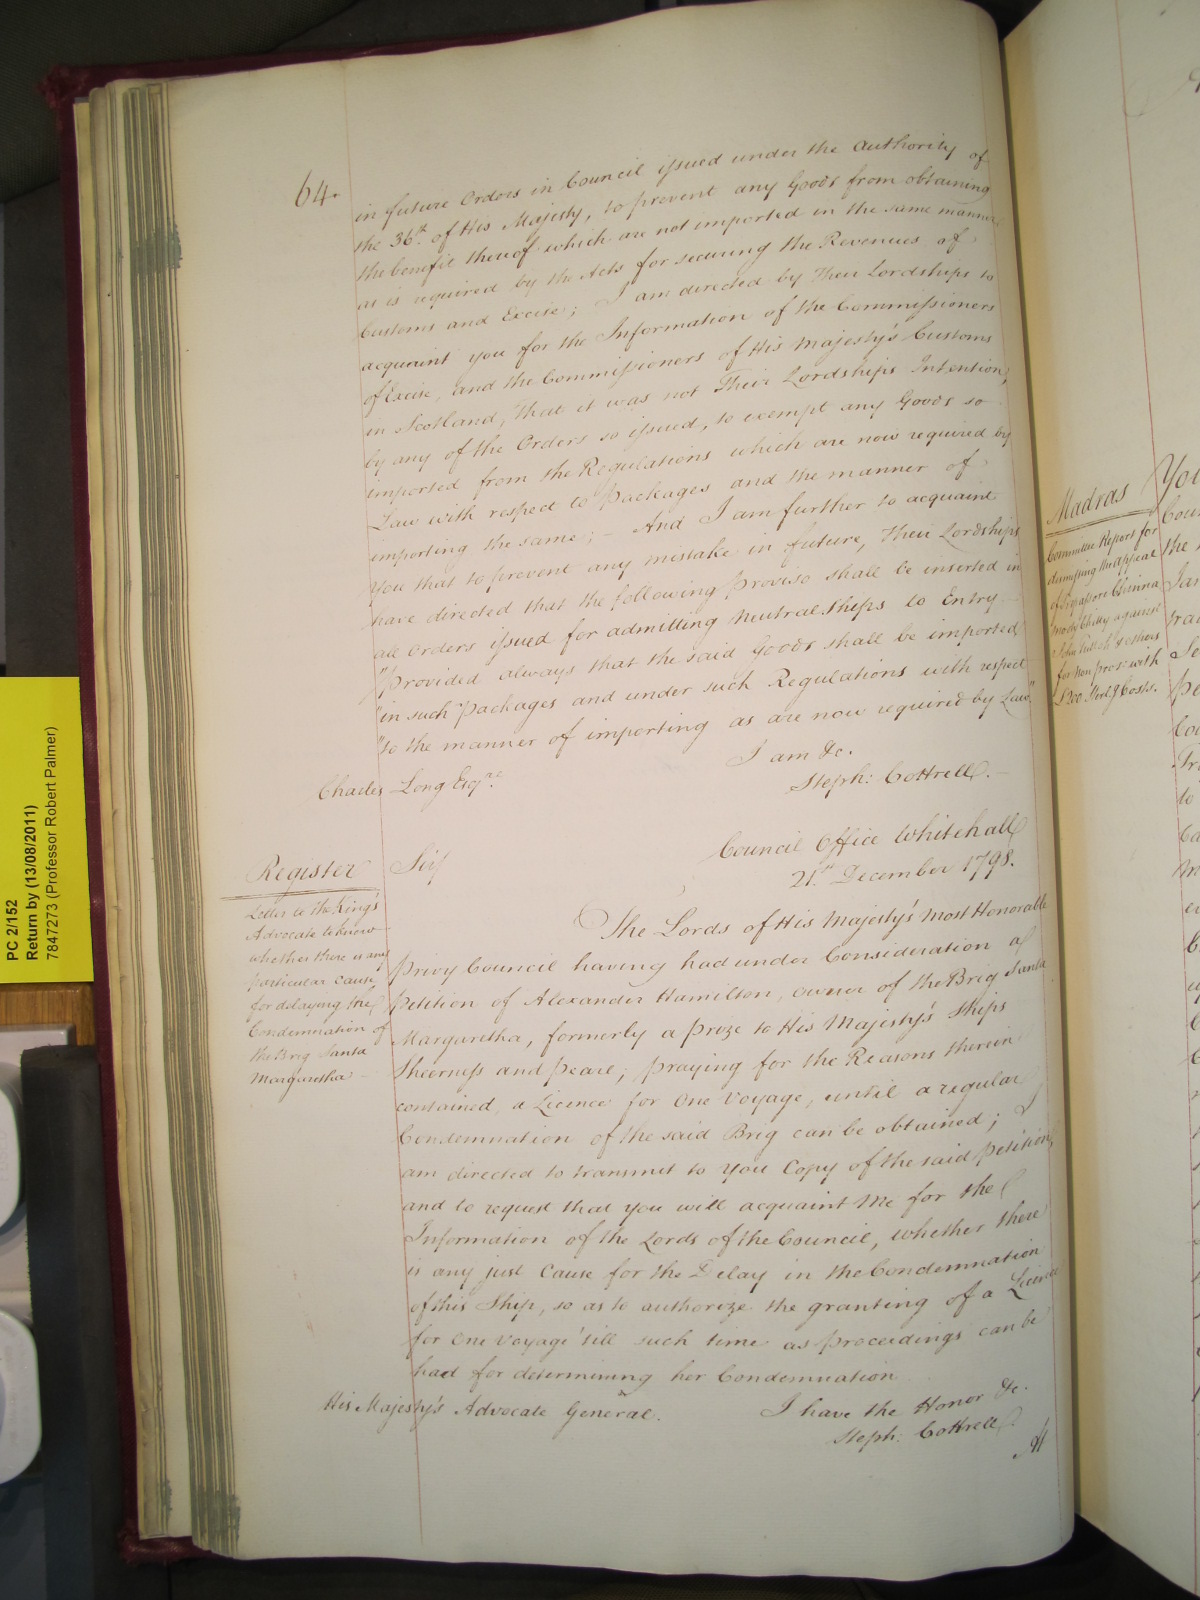 64.
in future Orders in Council issued under the Authority of
the 36th. of His Majesty, to prevent any Goods from obtaining
the benefit thereof which are not imported in the same manner
as is required by the Acts for securing the Revenues of
Customs and Excise; I am directed by Their Lordships to
acquaint you for the Information of the Commissioners
of Excise, and the Commissioners of His Majesty's Customs
in Scotland, that it was not Their Lordships Intention,
by any of the Orders so issued, to exempt any Goods so
imported from the Regulations which are now required by
Law with respect to Packages and the manner of
importing the same; - And I am further to acquaint
You that to prevent any mistake in future, Their Lordships
have directed that the following Proviso shall be inserted in
all Orders issued for admitting Neutral Ships to Entry -
"Provided always that the said Goods shall be imported
"in such Packages and under such Regulations with respect
"to the manner of importing as are now required by Law"
I am &c.
Steph: Cottrell. -
Charles Long Esqre.
Council Office Whitehall
21st December 1798.
Register
Letter to the King's
Advocate to know
whether there is any
particular cause
for delaying the
Condemnation of
the Brig Santa
Margaretha -
Sir/
The Lords of His Majesty's most Honorable
Privy Council having had under Consideration a
Petition of Alexander Hamilton, owner of the Brig Santa
Margaretha, formerly a Prize to His Majesty's Ships
Sheerness and Pearl; praying for the Reasons therein
contained, a Licence for One Voyage, until a regular
Condemnation of the said Brig can be obtained; I
am directed to transmit to You Copy of the said Petition,
and to request that you will acquaint Me for the
Information of the Lords of the Council, whether there
is any just Cause for the Delay in the Condemnation
of this Ship, so as to authorize the granting of a Licence
for One Voyage 'till such time as Proceedings can be
had for determining her Condemnation
I have the Honor &c.
Steph: Cottrell.
His Majesty's Advocate General.
At
Madras
Committee Report for
dismissing the appeal
of Chinna
Chitty against
John & others
for Non Pros: with
£200 Costs.
You
the
PC 2/152
Return by (13/08/2011)
7847273 (Professor Robert Palmer)